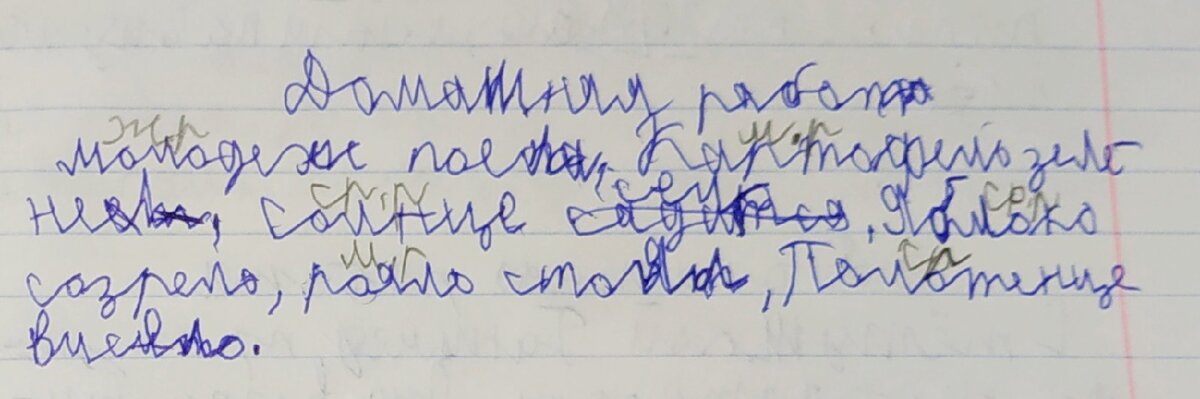 Домашняя работа
ж.р м.р
молодежь поела, Картофель зеле-
ср.р сел ср.р
нел, солнце садится, Яблоко
м.р ср
созрело, рояль стоял, Полотенце
висело.